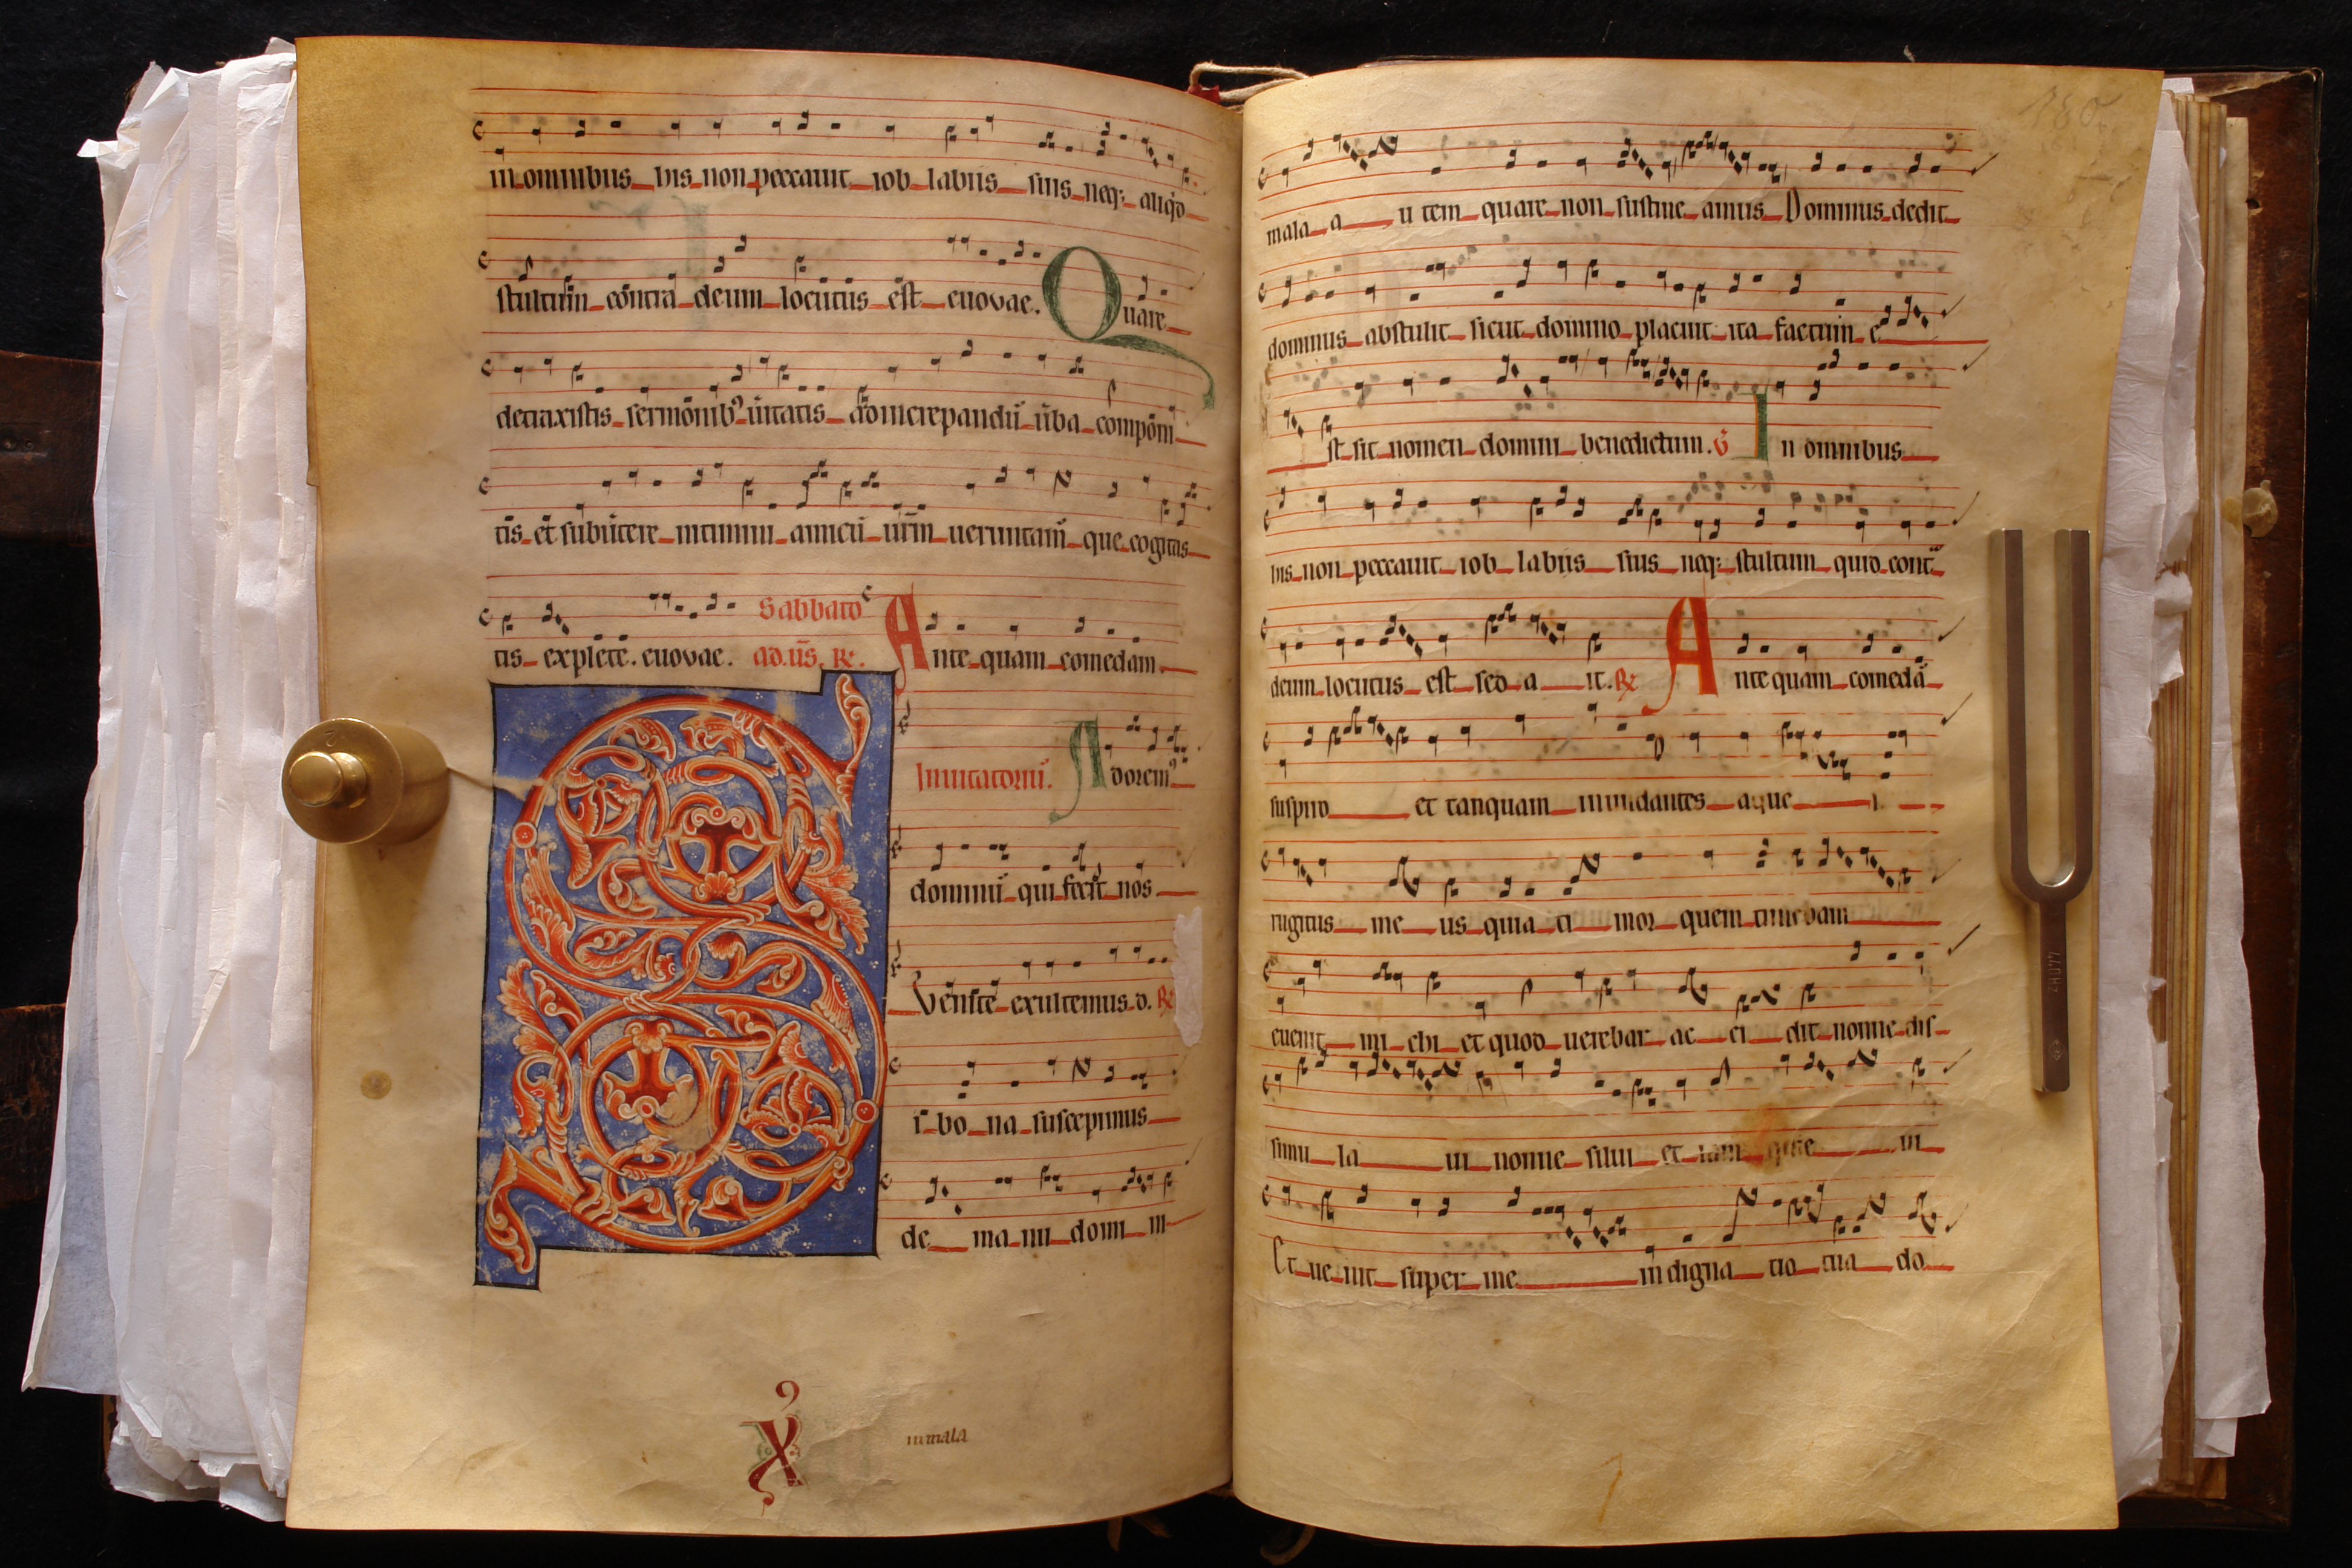 in omnibus his non peccauit iob labiis suis neq; aliq̇d
stultum̄ contra deum locutus est euovae. Quare
detraxistis sermonib⁹ ūitatis ad increpandū ūba componi
tis et subūtere intimini amicū ūrm̄ ueruntam̄ que cogitas
tis explete. euovae. Sabbato ad. ūs. ℟. Ante quam comedam
Inuitatoriū. Adorem⁹
dominū qui fecit nos
Venite exultemus. d. ℟
Si bo na suscepimus
de ma nu domi ni
x⁹
mala
180
mala a u tem quare non sustine amus Dominus dedit
dominus abstulit sicut domino placuit ita factum e
st sit nomen domini benedictum. ℣ In omnibus
his non peccauit iob labiis suis neq; stultum quid cont̃
deum locutus est sed a it. ℟ Ante quam comedā
suspiro et tanquam inundantes aque
rugitus me us quia ti mor quem timebam
euenit mi chi et quod uerebar ac ci dit nonne dis
simu la ui nonne silui et iam qui e ui
Et ue nit super me indigna tio tua do
440HZ